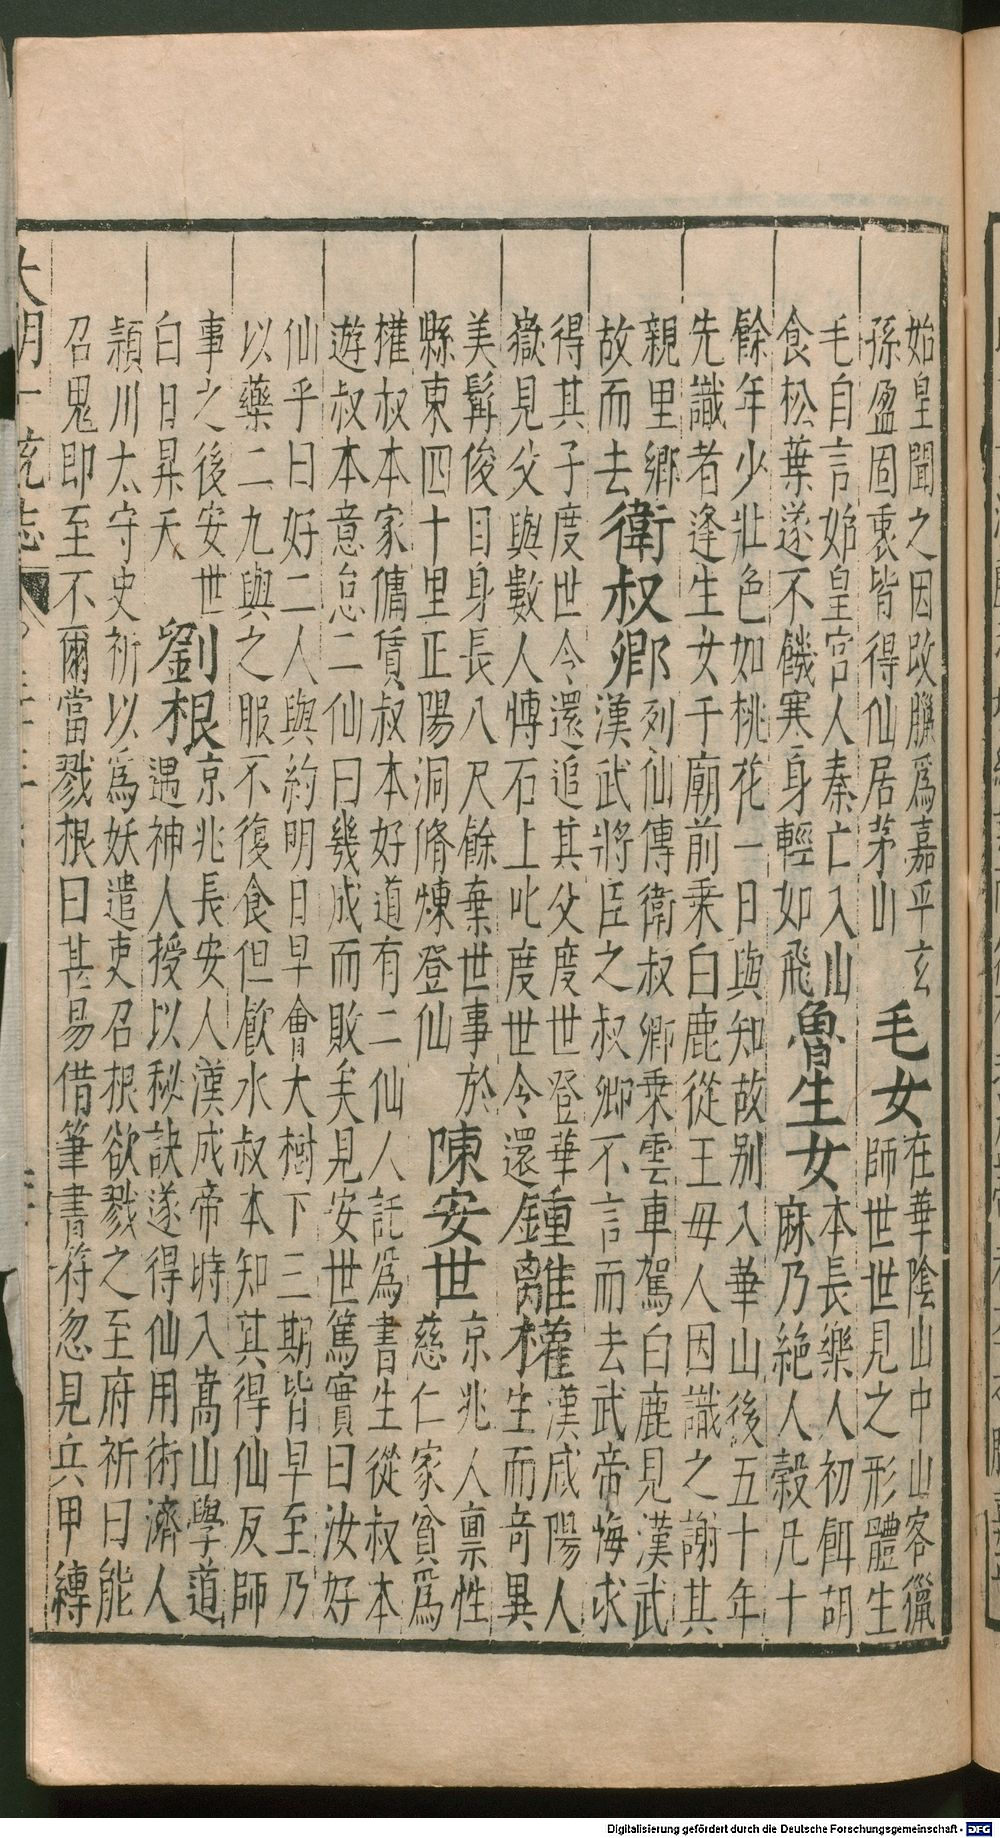 始皇聞之因改臘爲嘉平玄
孫盈固衷皆得仙居茅山
毛女
在華陰山中山客獵
師世世見之形體生
毛自言始皇宮人秦亡入山
食松葉遂不饑寒身輕如飛
魯生女
本長樂人初餌胡
麻乃絶人穀凡十
餘年少壯色如桃花一日與知故别入華山後五十年
先識者逢生女于廟前乗白鹿從王母人因識之謝其
親里鄉
故而去
衛叔卿
列仙傳衛叔卿乗雲車駕白鹿見漢武
漢武將臣之叔卿不言而去武帝悔求
得其子度世令還追其父度世登華
嶽見父與數人博石上叱度世令還
鍾離權
漢咸陽人
生而奇異
美髯俊目身長八尺餘棄世事於
縣東四十里正陽洞脩煉登仙
陳安世
京兆人禀性
慈仁家貧爲
權叔本家傭賃叔本好道有二仙人託爲書生從叔本
遊叔本意怠二仙曰幾成而敗矣見安世篤實曰汝好
仙乎曰好二人與約明日早會大樹下三期皆早至乃
以藥二九與之服不復食但飮水叔本知其得仙反師
事之後安世
白日昇天
劉根
京兆長安人漢成帝時入嵩山學道
遇神人授以秘訣遂得仙用術濟人
潁川太守史祈以爲妖遣吏召根欲戮之至府祈曰能
召鬼即至不爾當戮根曰甚易借筆書符忽見兵甲縳
大明一統志
Digitalisierung gefördert durch die Deutsche Forschungsgemeinschaft - DFG